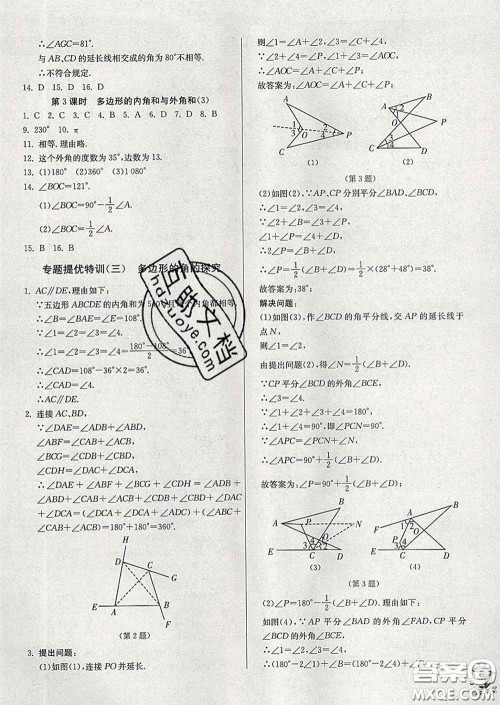 ∴∠AGC=81°.
与AB,CD的延长线相交成的角为80°不相等.
∴不符合规定.
14. D 15. D 16. D
第3课时 多边形的内角和与外角和(3)
1. C 2. C 3. C 4. B 5. A 6. D 7. D 8. B
9. 230° 10. π
11. 相等. 理由略.
12. 这个外角的度数为35°,边数为13.
13. (1)180° (2)360° (3)1 080°
14. ∠BOC=121°.
(1)∠BOC=90°-1/2∠A.
(2)∠BOC=1/2∠A.
15. B 16. B
专题提优特训(三) 多边形的角的探究
1. AC∥DE,理由如下:
∵五边形ABCDE的内角和为540°且每个内角都相等,
∴∠B=∠BAE=∠E=108°.
∴∠1=∠2=∠3=∠4=(180°-108°)/2=36°.
∴∠CAD=108°-36°=36°.
∴∠CAD=∠4.
∴AC∥DE.
2. 连接AC,BD,
∵∠DAE=∠ADB+∠ABD,
∠CBF=∠CAB+∠ACB,
∠BCG=∠BDC+∠CBD,
∠CDH=∠DAC+∠DCA,
∴∠DAE+∠CBF+∠BCG+∠CDH=∠ADB+∠ABD+∠CAB+∠ACB+∠BDC+∠CBD+∠DAC+∠DCA=(∠DAC+∠ADC+∠ACD)+(∠ABC+∠CAB+∠ACB)=180°+180°=360°.
H
D
C
G
E
A
B
F
(第2题)
3. 提出问题:
(1)如图(1),连接PO并延长.
则∠1=∠A+∠2,∠3=∠C+∠4,
∵∠2+∠4=∠P,∠1+∠3=∠AOC,
∴∠AOC=∠A+∠C+∠P.
故答案为:∠AOC=∠A+∠C+∠P.
(1)
(2)
(第3题)
(2)如图(2),∵AP、CP分别平分∠BAD、∠BCD,
∴∠1=∠2,∠3=∠4,
∵∠2+∠B=∠3+∠P,
∠1+∠P=∠4+∠D,
∴2∠P=∠B+∠D.
∴∠P=1/2(∠B+∠D)=1/2×(28°+48°)=38°.
故答案为:38°.
解决问题:
(1)如图(3),作∠BCD的角平分线,交AP的延长线于点N,
由提出问题(2),得∠N=1/2(∠B+∠D).
∵CP平分∠BCD的外角∠BCE,
∴∠3=∠4.
∴∠1+∠2+∠3+∠4=180°,
∴∠1+∠4=90°,即∠PCN=90°.
∴∠APC=∠PCN+∠N,
∴∠APC=90°+1/2(∠B+∠D).
故答案为:∠P=90°+1/2(∠B+∠D).
(3)
(4)
(第3题)
(2)∠P=180°-1/2(∠B+∠D). 理由如下:
如图(4),∵AP平分∠BAD的外角∠FAD,CP平分∠BCD的外角∠BCE,
∴∠1=∠2,∠3=∠4.
∴(180°-2∠1)+∠B=(180°-2∠4)+∠D,
互助文档
hdzuoye.com
答案圈
MXQE.COM